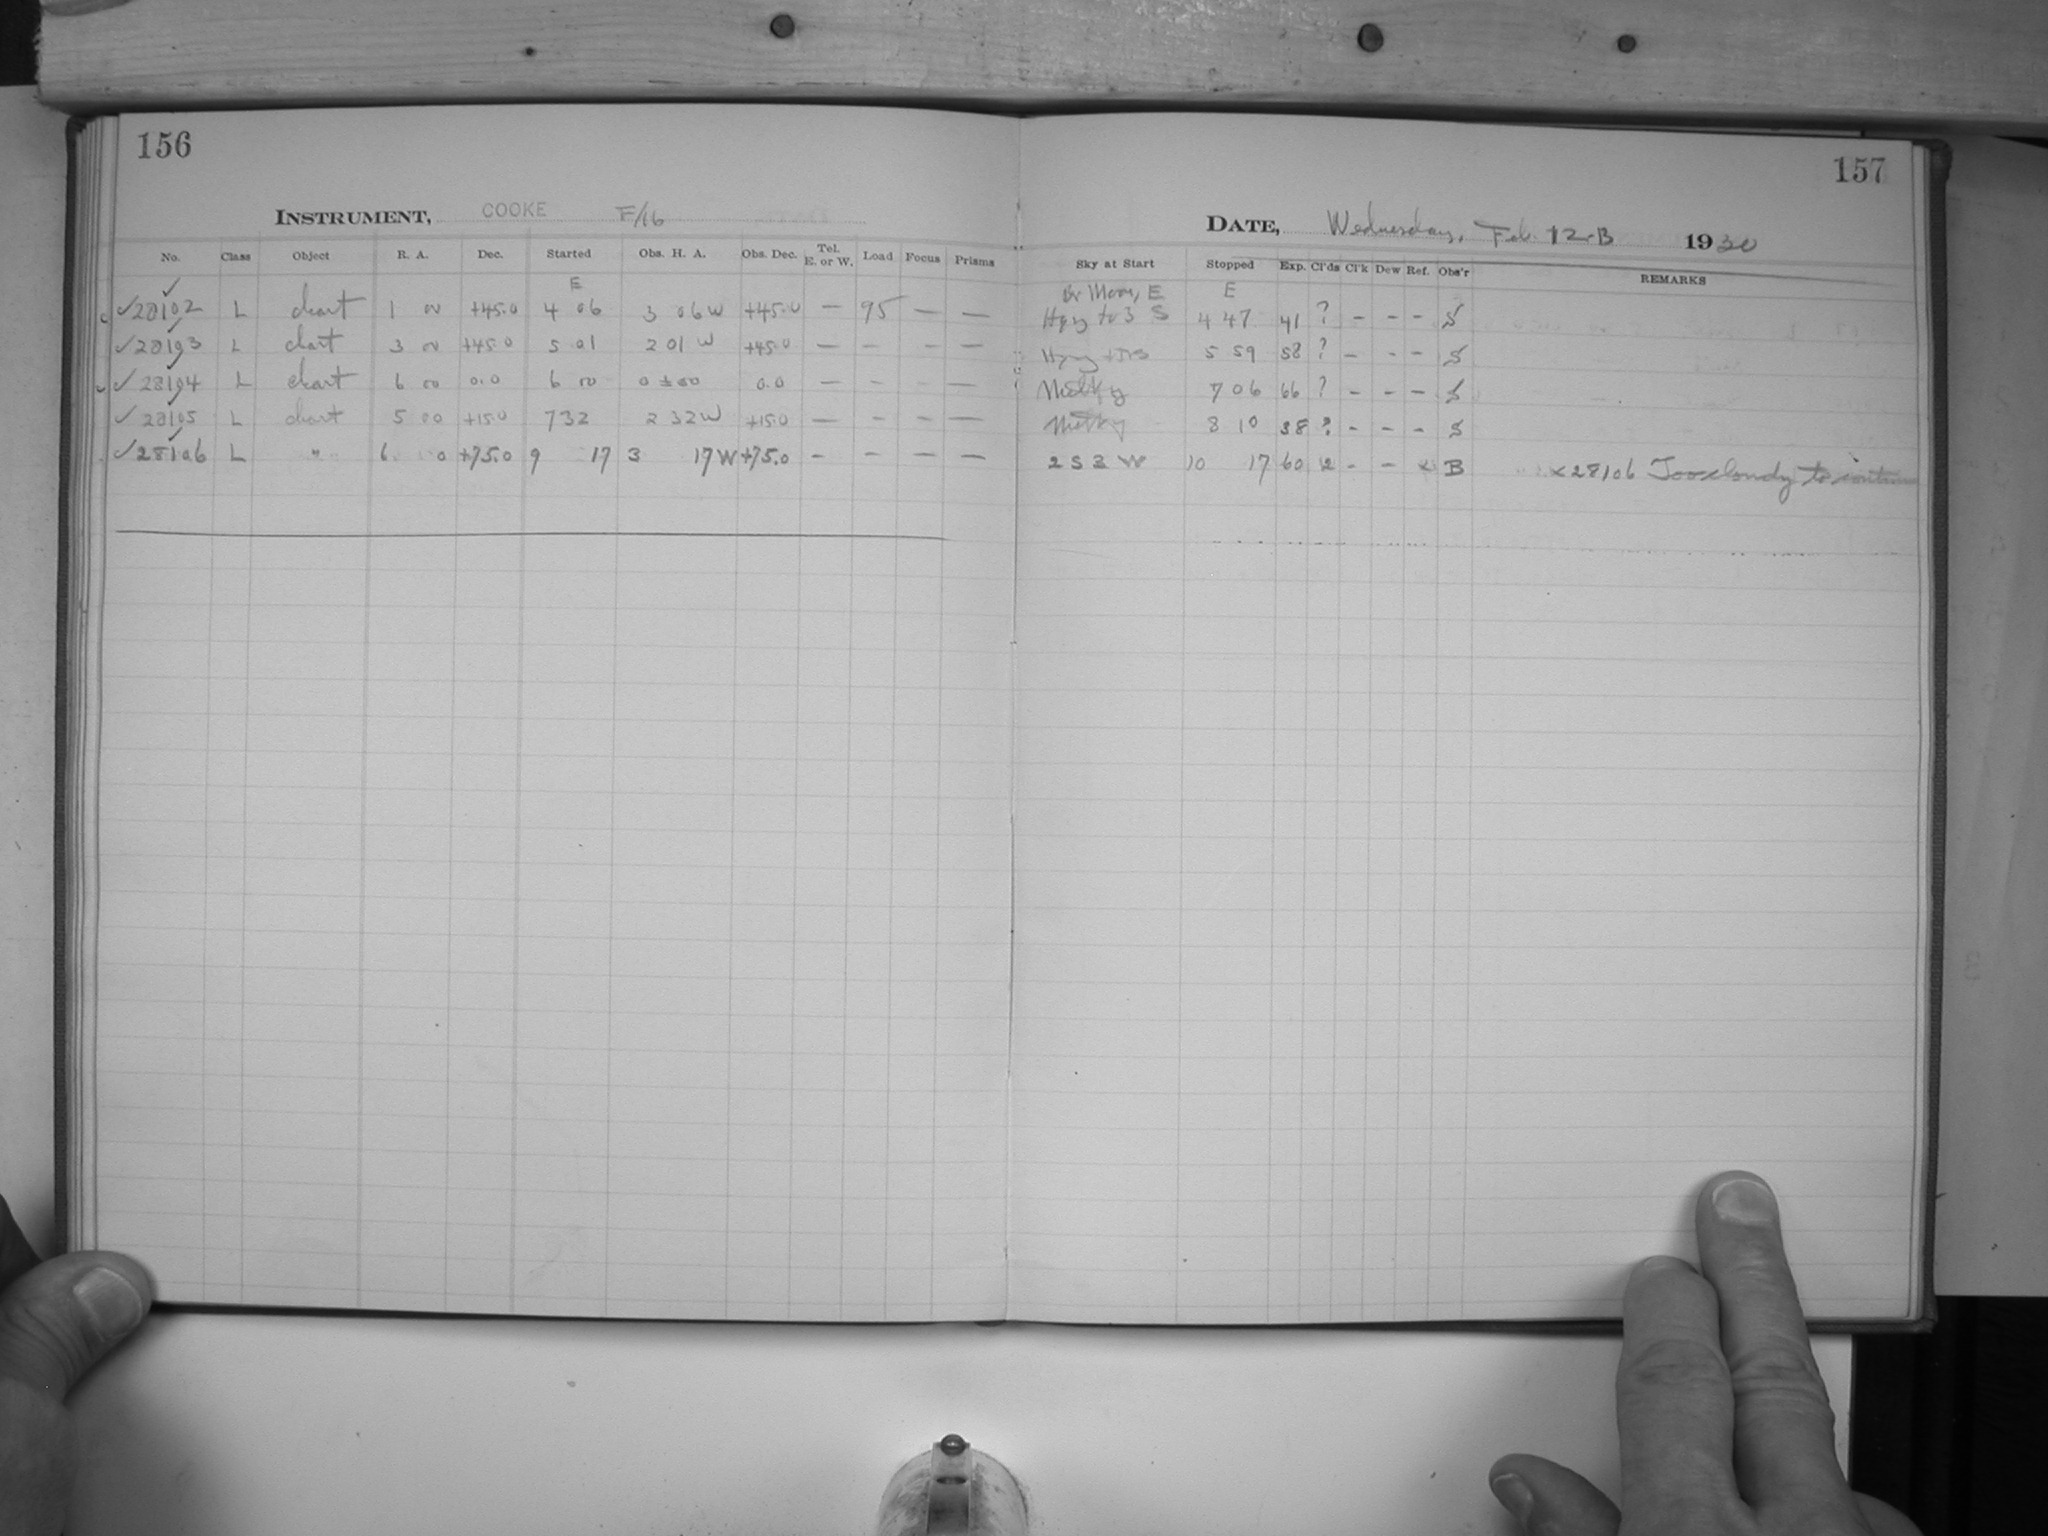 156
INSTRUMENT, COOKE F/16
No. Class Object R. A. Dec. Started Obs. H. A. Obs. Dec. Tel. E. or W. Load Focus Prisms
E
✓28102 L chart 1 00 +45.0 4 06 3 06 W +45.0 — 95 — —
✓28103 L chart 3 00 +45.0 5 01 2 01 W +45.0 — – – —
✓28104 L chart 6 00 0.0 6 00 0 ± 00 0.0 — – – —
✓28105 L chart 5 00 +15.0 7 32 2 32 W +15.0 — – – —
✓28106 L " 6 0 +75.0 9 17 3 17 W +75.0 – – – —
157
DATE, Wednesday, Feb. 12-B 1930
Sky at Start Stopped Exp. Cl'ds Cl'k Dew Ref. Obs'r REMARKS
Br Moon, E E
Hazy to 3 S 4 47 41 ? – – – S
Hazy 5 59 58 ? – – – S
Milky 7 06 66 ? – – – S
Milky 8 10 38 ? – – – S
2 S 3 W 10 17 60 12 – – x B x 28106 Too cloudy to continue